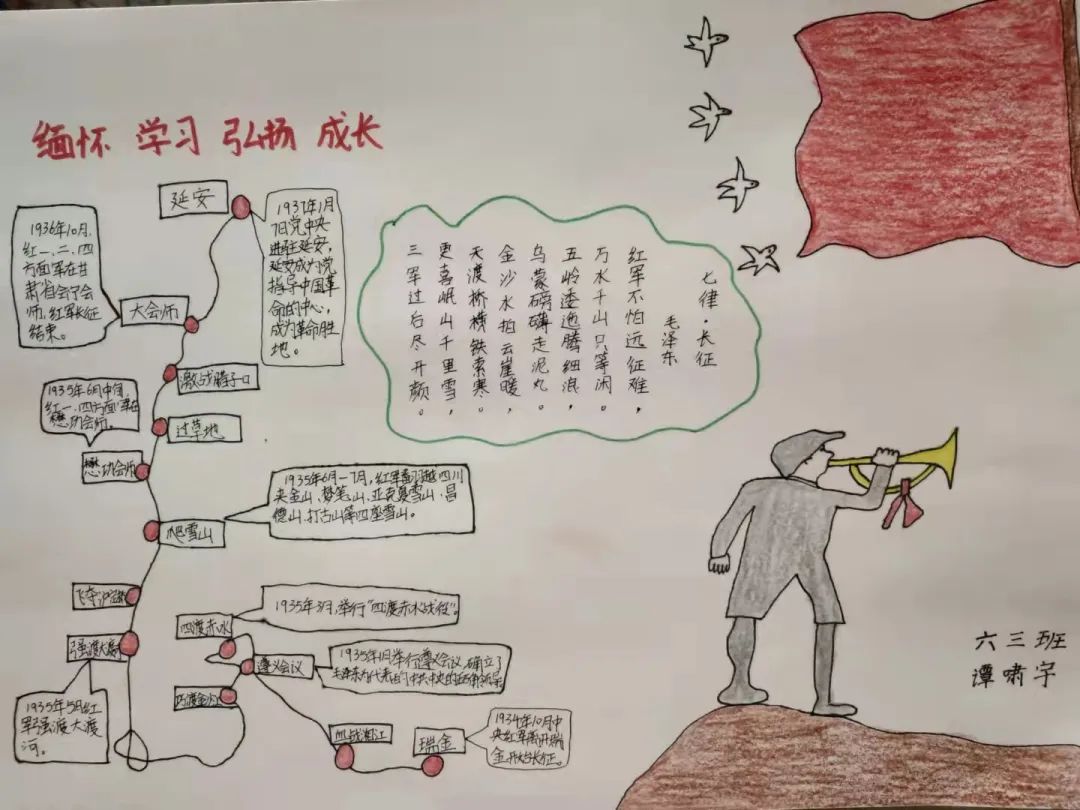 缅怀 学习 弘扬 成长
延安
1937年1月
7日党中央
进驻延安,
延安成为党
指导中国革
命的中心,
成为革命胜
地。
1936年10月,
红一、二、四
方面军在甘
肃省会宁会
师,红军长征
结束。
大会师
激战腊子口
过草地
1935年6月中旬,
红一、四方面军在
懋功会师。
懋功会师
1935年6月-7月,红军翻越四川
夹金山、梦笔山、亚克夏雪山、昌
德山、打古山等四座雪山。
爬雪山
飞夺泸定桥
强渡大渡河
1935年5月红
军强渡大渡
河。
四渡赤水
1935年3月,举行“四渡赤水战役”。
遵义会议
1935年1月举行遵义会议,确立了
毛泽东为代表的中共中央的
巧渡金沙江
血战湘江
瑞金
1934年10月中
央红军离开瑞
金,开始长征。
七律·长征
毛泽东
红军不怕远征难,
万水千山只等闲。
五岭逶迤腾细浪,
乌蒙磅礴走泥丸。
金沙水拍云崖暖,
大渡桥横铁索寒。
更喜岷山千里雪,
三军过后尽开颜。
六三班
谭啸宇